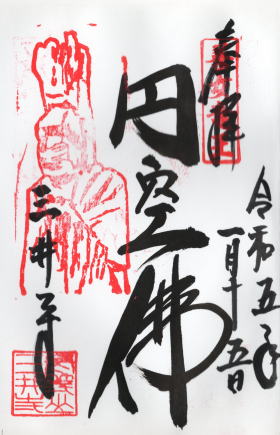 奉拝
令和五年
一月十五日
円空佛
三井寺